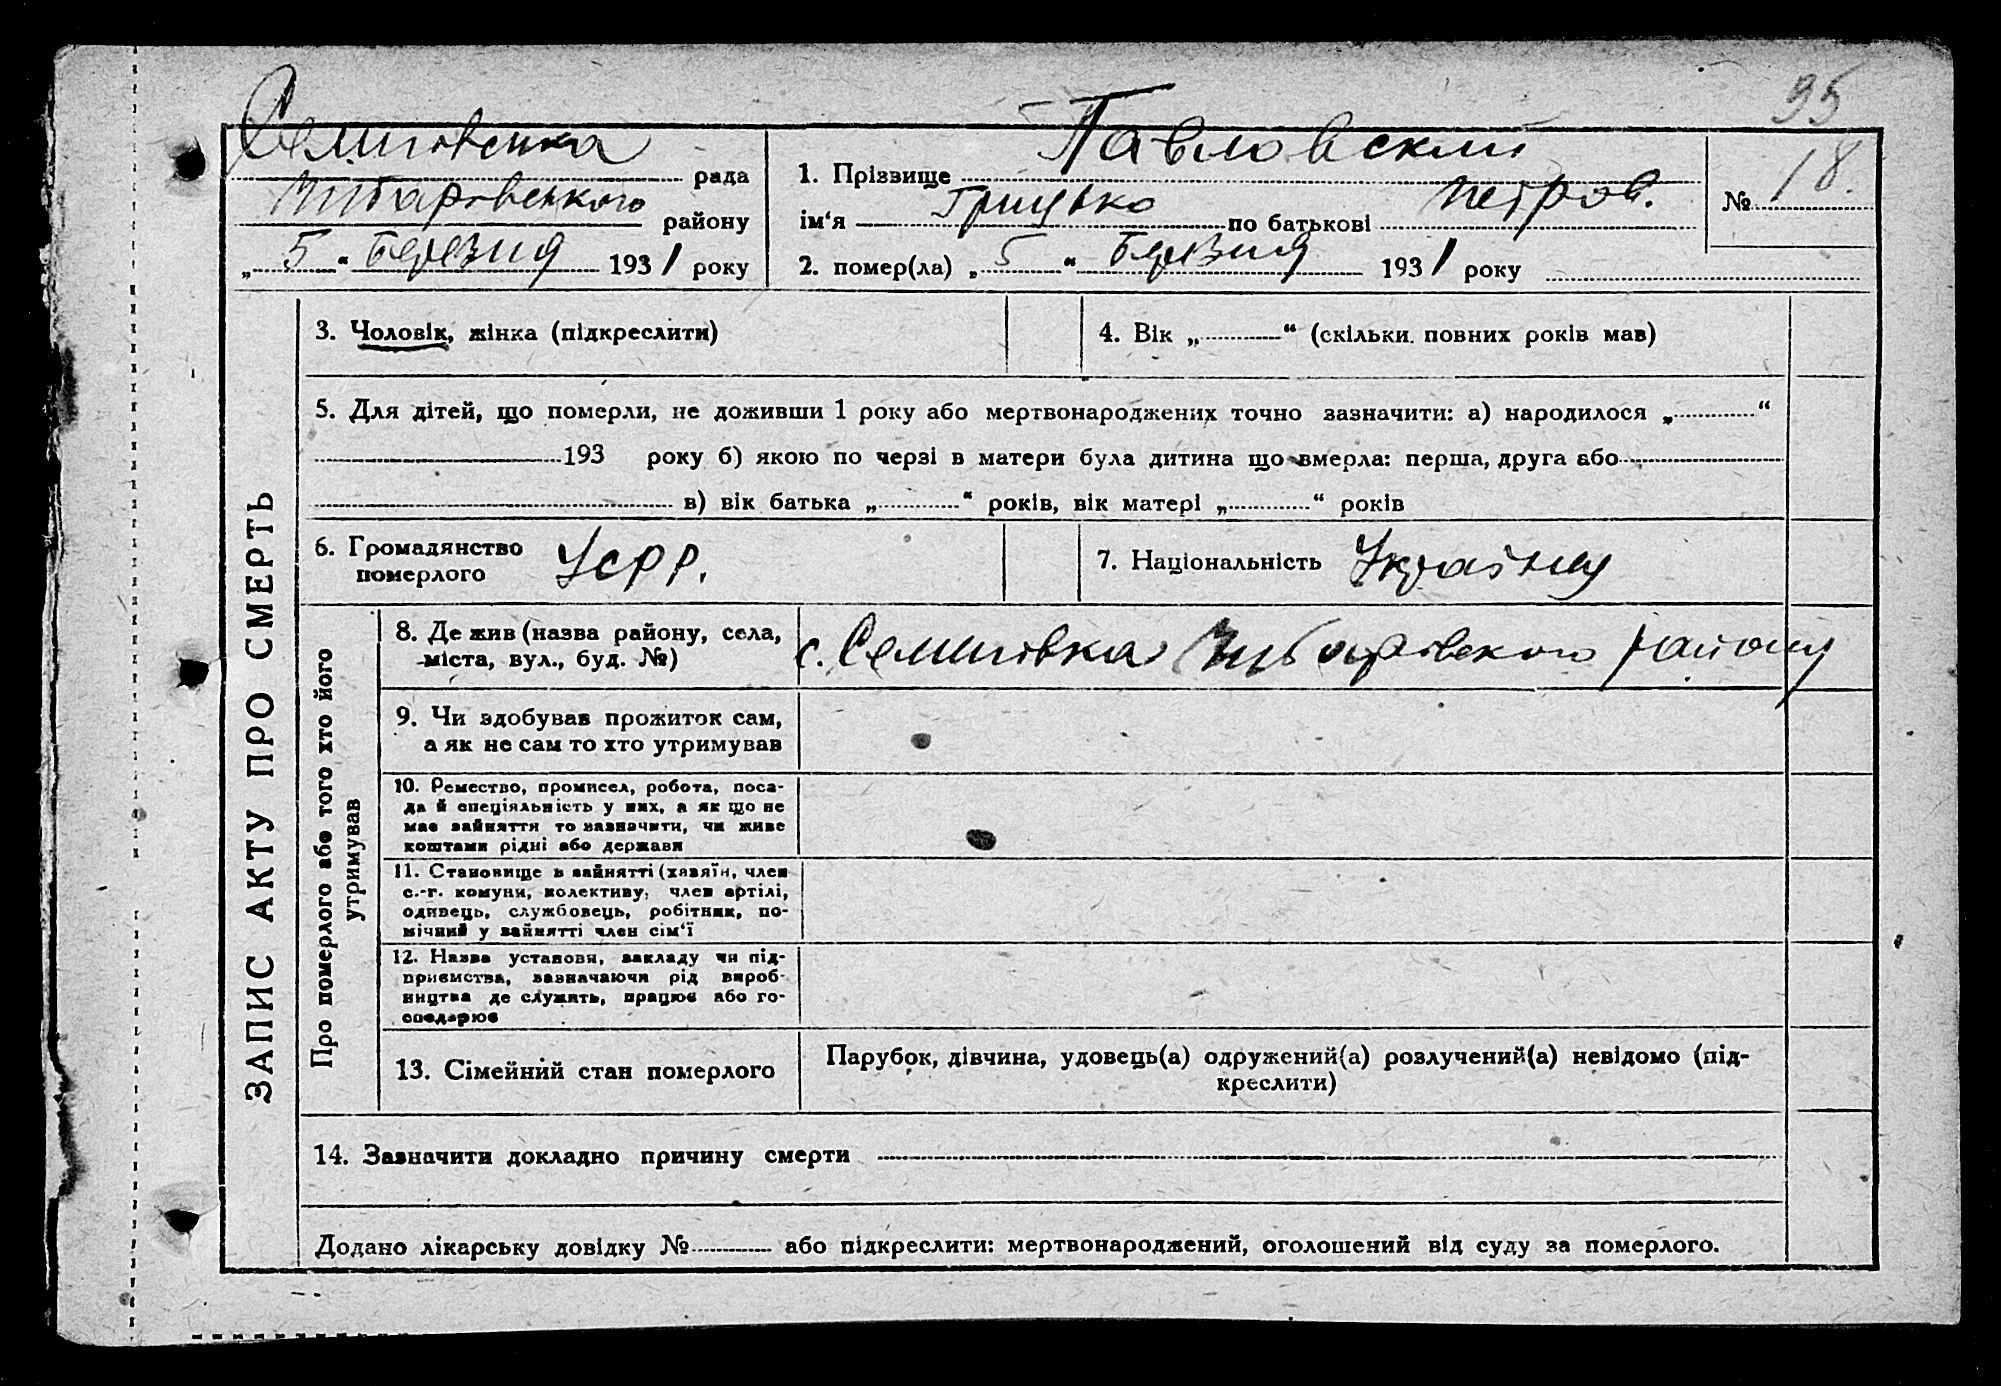 95
Семигоенка рада
району
„ 5 “ Березня 1931 року
1. Прізвище Павловский
ім'я Грицько по батькові Петров.
2. помер(ла) „ 5 “ Березня 1931 року
№ 18.
ЗАПИС АКТУ ПРО СМЕРТЬ
3. Чоловік, жінка (підкреслити)
4. Вік „ “ (скільки повних років мав)
5. Для дітей, що померли, не доживши 1 року або мертвонароджених точно зазначити: а) народилося „ “
193 року б) якою по черзі в матери була дитина що вмерла: перша, друга або
в) вік батька „ “ років, вік матері „ “ років
6. Громадянство
померлого
УСРР.
7. Національність
Про померлого або того хто його
утримував
8. Де жив (назва району, села,
міста, вул., буд. №)
с. району
9. Чи здобував прожиток сам,
а як не сам то хто утримував
10. Ремество, промисел, робота, поса-
да й спеціяльність у них, а як що не
має зайняття то зазначити, чи живе
коштами рідні або держави
11. Становище в зайнятті (хазяїн, член
с.-г. комуни, колективу, член артілі,
одивець, службовець, робітник, по-
мічний у зайнятті член сім'ї
12. Назва установи, закладу чи під-
приємства, зазначаючи рід вироб-
ництва де служить, працює або го-
сподарює
13. Сімейний стан померлого
Парубок, дівчина, удовець(а) одружений(а) розлучений(а) невідомо (під-
креслити)
14. Зазначити докладно причину смерти
Додано лікарську довідку № або підкреслити: мертвонароджений, оголошений від суду за померлого.